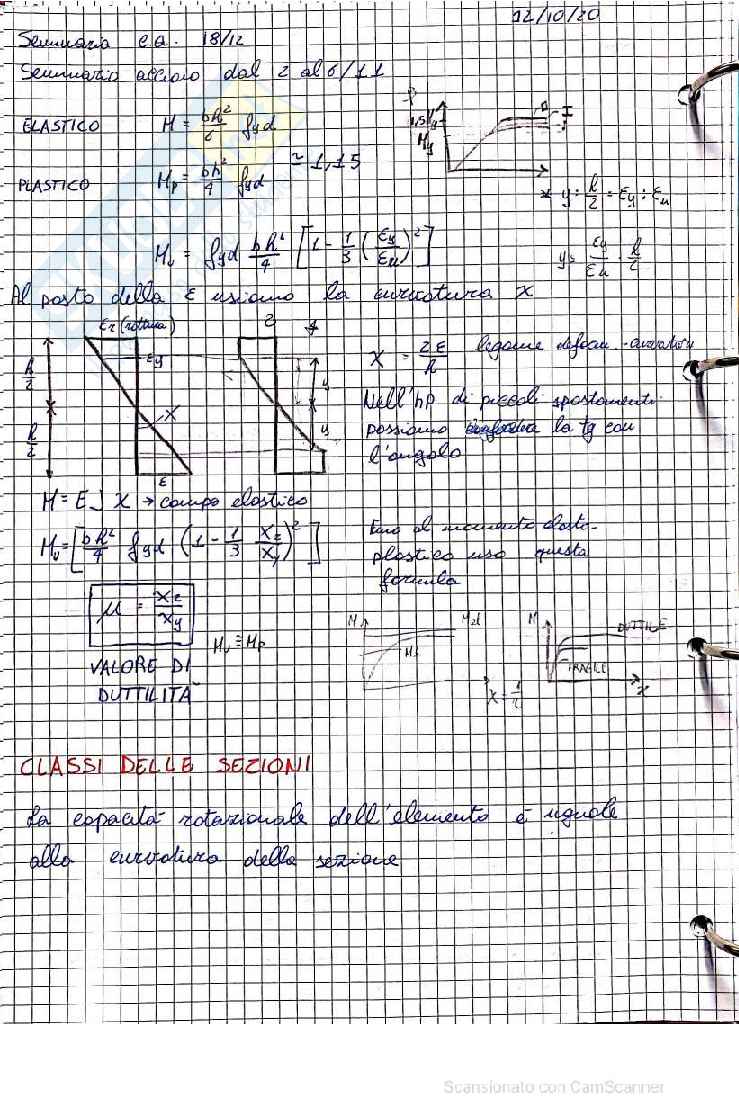 12/10/20
Seminario c.a. 18/12
Seminario acciaio dal 2 al 6/11
ELASTICO M = bh²/6 fyd
PLASTICO Mp = bh²/4 fyd ≃ 1,15
* y : h/2 = εy : εu
Mu = fyd bh²/4 [1 - 1/3 (εy/εu)²]
y = εy/εu · h/2
Al posto della ε usiamo la curvatura χ
εr (rottura)
εy
h/2
h/2
χ
ε
y
y
χ = 2ε/h legame defom.-curvatura
Nell'hp di piccoli spostamenti
possiamo la tg con
l'angolo
M = EJ χ → campo elastico
Mu = [bh²/4 fyd (1 - 1/3 χe/χy)²]
Fino al momento elasto-
plastico uso questa
formula
μ = χe/χy
Mu ≡ Mp
VALORE DI
DUTTILITÀ
M
M
DUTTILE
FRAGILE
χ
χ = 1/r
CLASSI DELLE SEZIONI
La capacità rotazionale dell'elemento è uguale
alla curvatura della sezione
Scansionato con CamScanner